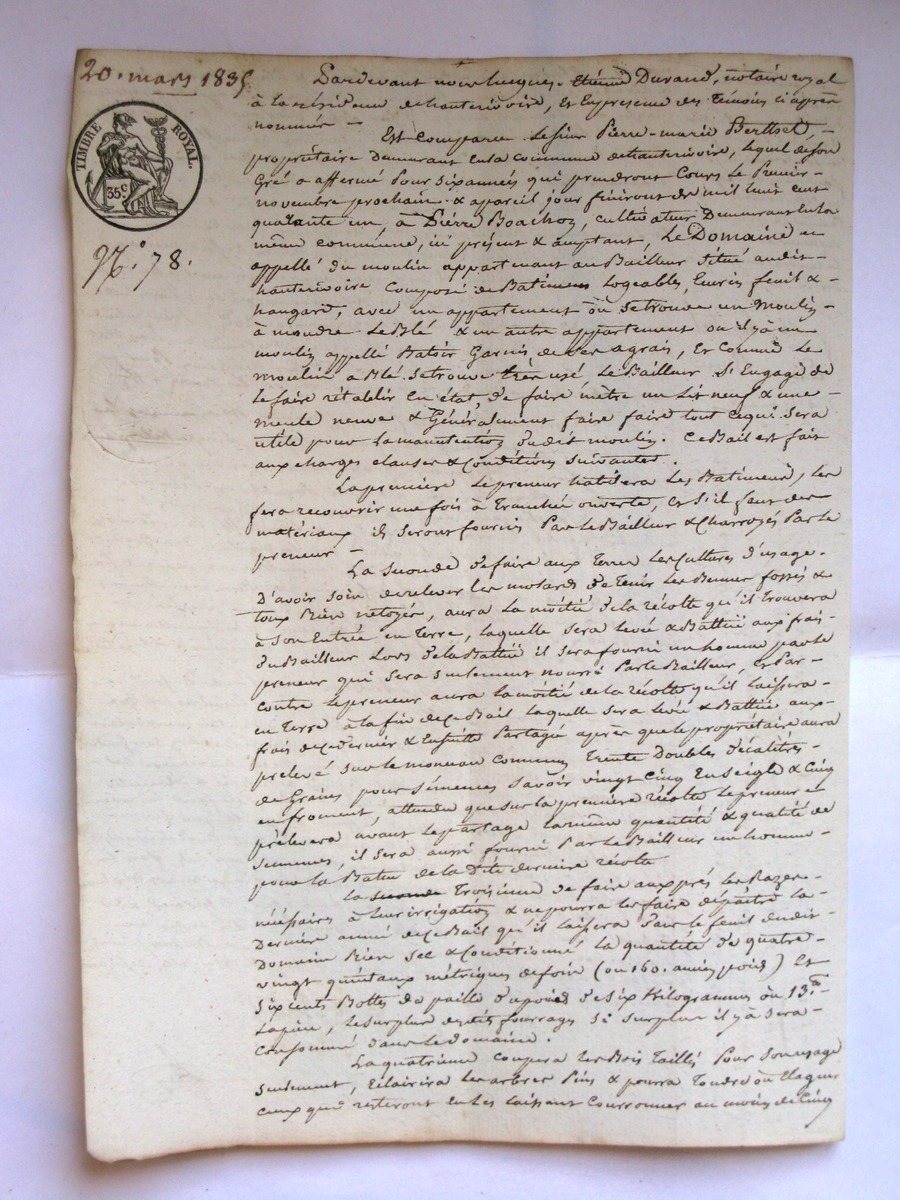 20. mars 1835
TIMBRE ROYAL.
35.c
N.o 78.
Pardevant nous Jucques Etienne Durand, notaire royal
à la résidence de hauterivoire, et en présence des témoins ci après
nommés —
Est comparu Le sieur Pierre-marie Berthet, -
propriétaire Demeurant en la commune de hauterivoire, lequel de son
Gré a affermé Pour six années qui prendront Cours Le Premier
novembre prochain & a pareil jour finiront de mil huit cent
quarante un, à Pierre Boachoz, cultivateur Demeurant en la
même commune, ici présent & acceptant, Le Domaine
appellé du moulin appartenant au Bailleur situé audit
hauterivoire Composé de Batimens Logeables, Ecuries fenil &
hangard, avec un appartement où se trouve un Moulin
à moudre Le Blé & un autre appartement ou il y à un
moulin appellé Batoir Garnis de ses agrais, Et Comme Le
moulin a Blé se trouve très usé, Le Bailleur s'Engage de
Le faire rétablir En état, de faire mètre un Lit neuf & une
meule neuve & Généralement faire faire tout ce qui sera
utile pour La manutention dudit moulin. Ce Bail est fait
aux charges clauses & Conditions suivantes.
La première Le preneur habitera Les Batimens, Les
fera recouvrir une fois à Tranchée ouverte, Et s'il faut des
matériaux ils seront fournis Par Le Bailleur & Charroyés Par Le
preneur —
La seconde De faire aux Terres Les Cultures d'usage
D'avoir soin de relever Les De Tenir Les fossés &
Bien netoyés, aura La moitié de la récolte qu'il Trouvera
à son Entrée en Terre, laquelle sera levée & Battue aux frais
du Bailleur Lors de la Battue il sera fourni un homme par le
preneur qui sera seulement nourri Par le Bailleur, Et Par
contre Le preneur aura la moitié de la récolte qu'il laissera
en Terre à la fin de ce Bail laquelle sera levée & Battue aux
frais de ce dernier & Ensuite Partagée après que le propriétaire aura
prelevé sur le monceau commun Trente Doubles décalitres
de Grains pour semences savoir vingt Cinq En seigle & Cinq
en froment, attendu que sur la première récolte Le preneur
prélevera avant Le partage la même quantité & qualité de
semences, il sera aussi fourni Par Le Bailleur un homme
pour La Batue de la Dte dernière récolte
La seconde Troisième de faire aux prés Les Razes
nécéssaires à leur irrigation & ne pourra les faire dépaître la
Dernière année de ce Bail qu'il laissera Dans Le fenil dudit
Domaine Bien sec & Conditionné La quantité de quatre
vingt quintaux métriques de foin (ou 160. ancien poids) Et
Six cents Bottes de paille du poids de six Kilogrammes ou 13.
La pièce, Le surplus desdits fourrages si surplus il y à sera
Consommé dans Le domaine.
La quatrième coupera Les Bois Taillés Pour son usage
seulement, Eclairira Les arbres Pins & pourra Tondre ou Elaguer
ceux qui resteront en Les laissant Courronner au moins de Cinq